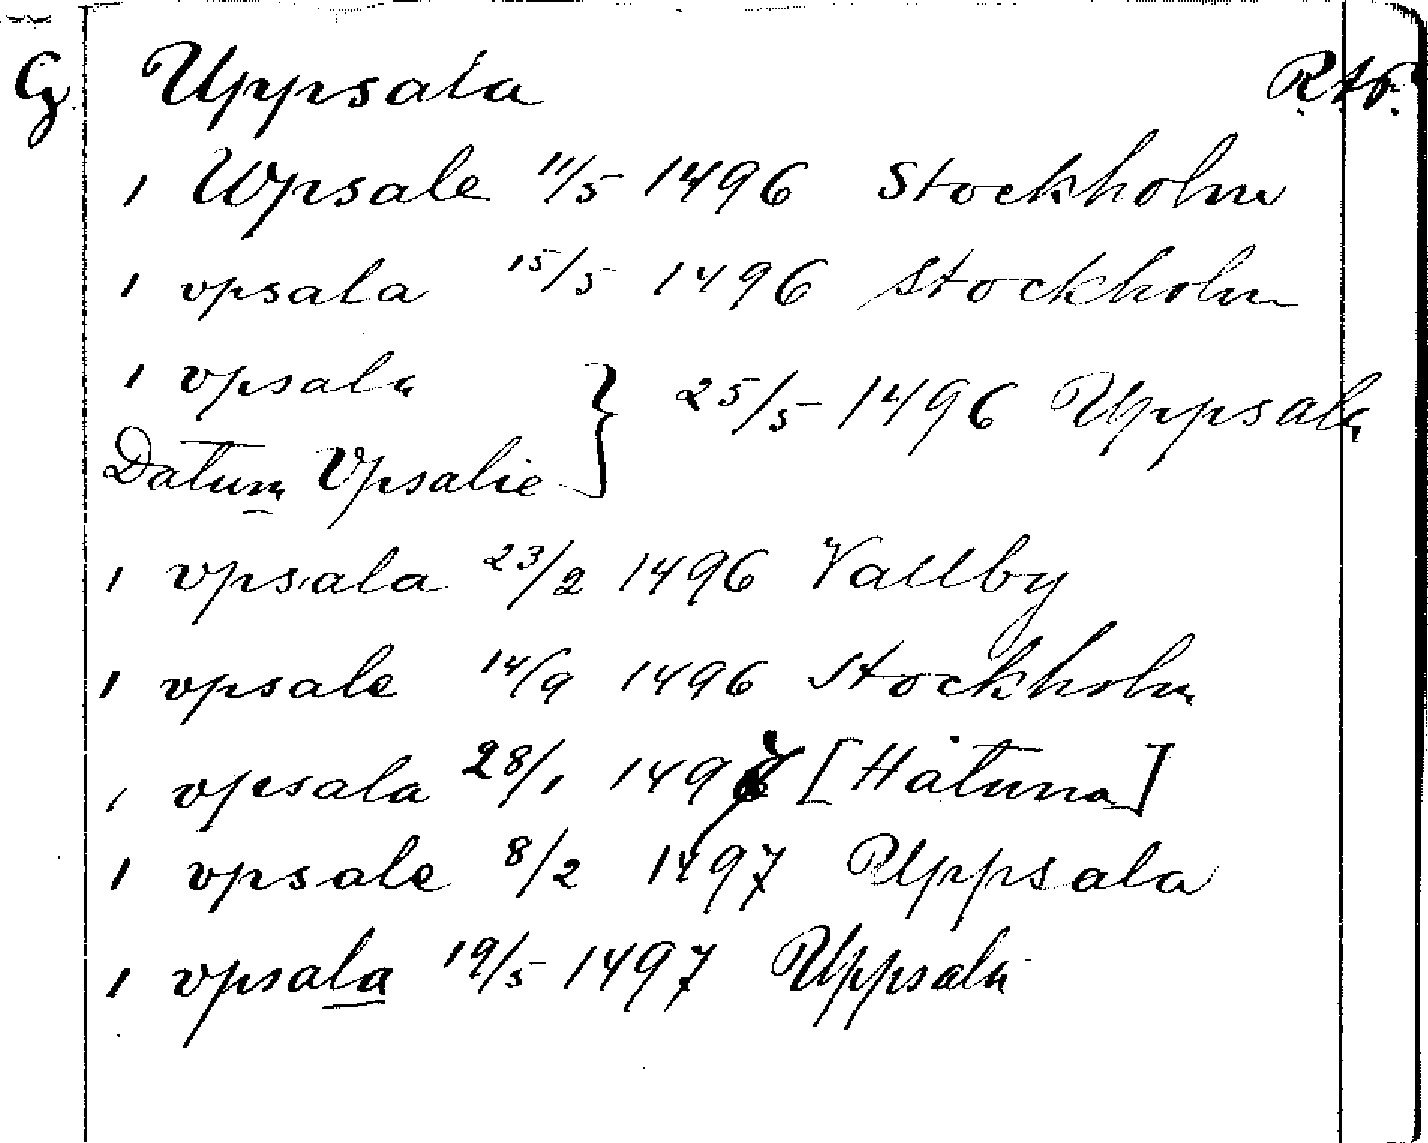 Uppsala R.A.P.
i Wpsale 11/5 1496 Stockholm
i vpsala 15/5 1496 Stockholm
i vpsala } 25/5 1496 Uppsala
Datum Vpsalie
i vpsala 23/2 1496 Vallby
i vpsale 14/9 1496 Stockholm
i vpsala 28/1 1497 [Håtuna]
i vpsale 8/2 1497 Uppsala
i vpsala 19/5 1497 Uppsala